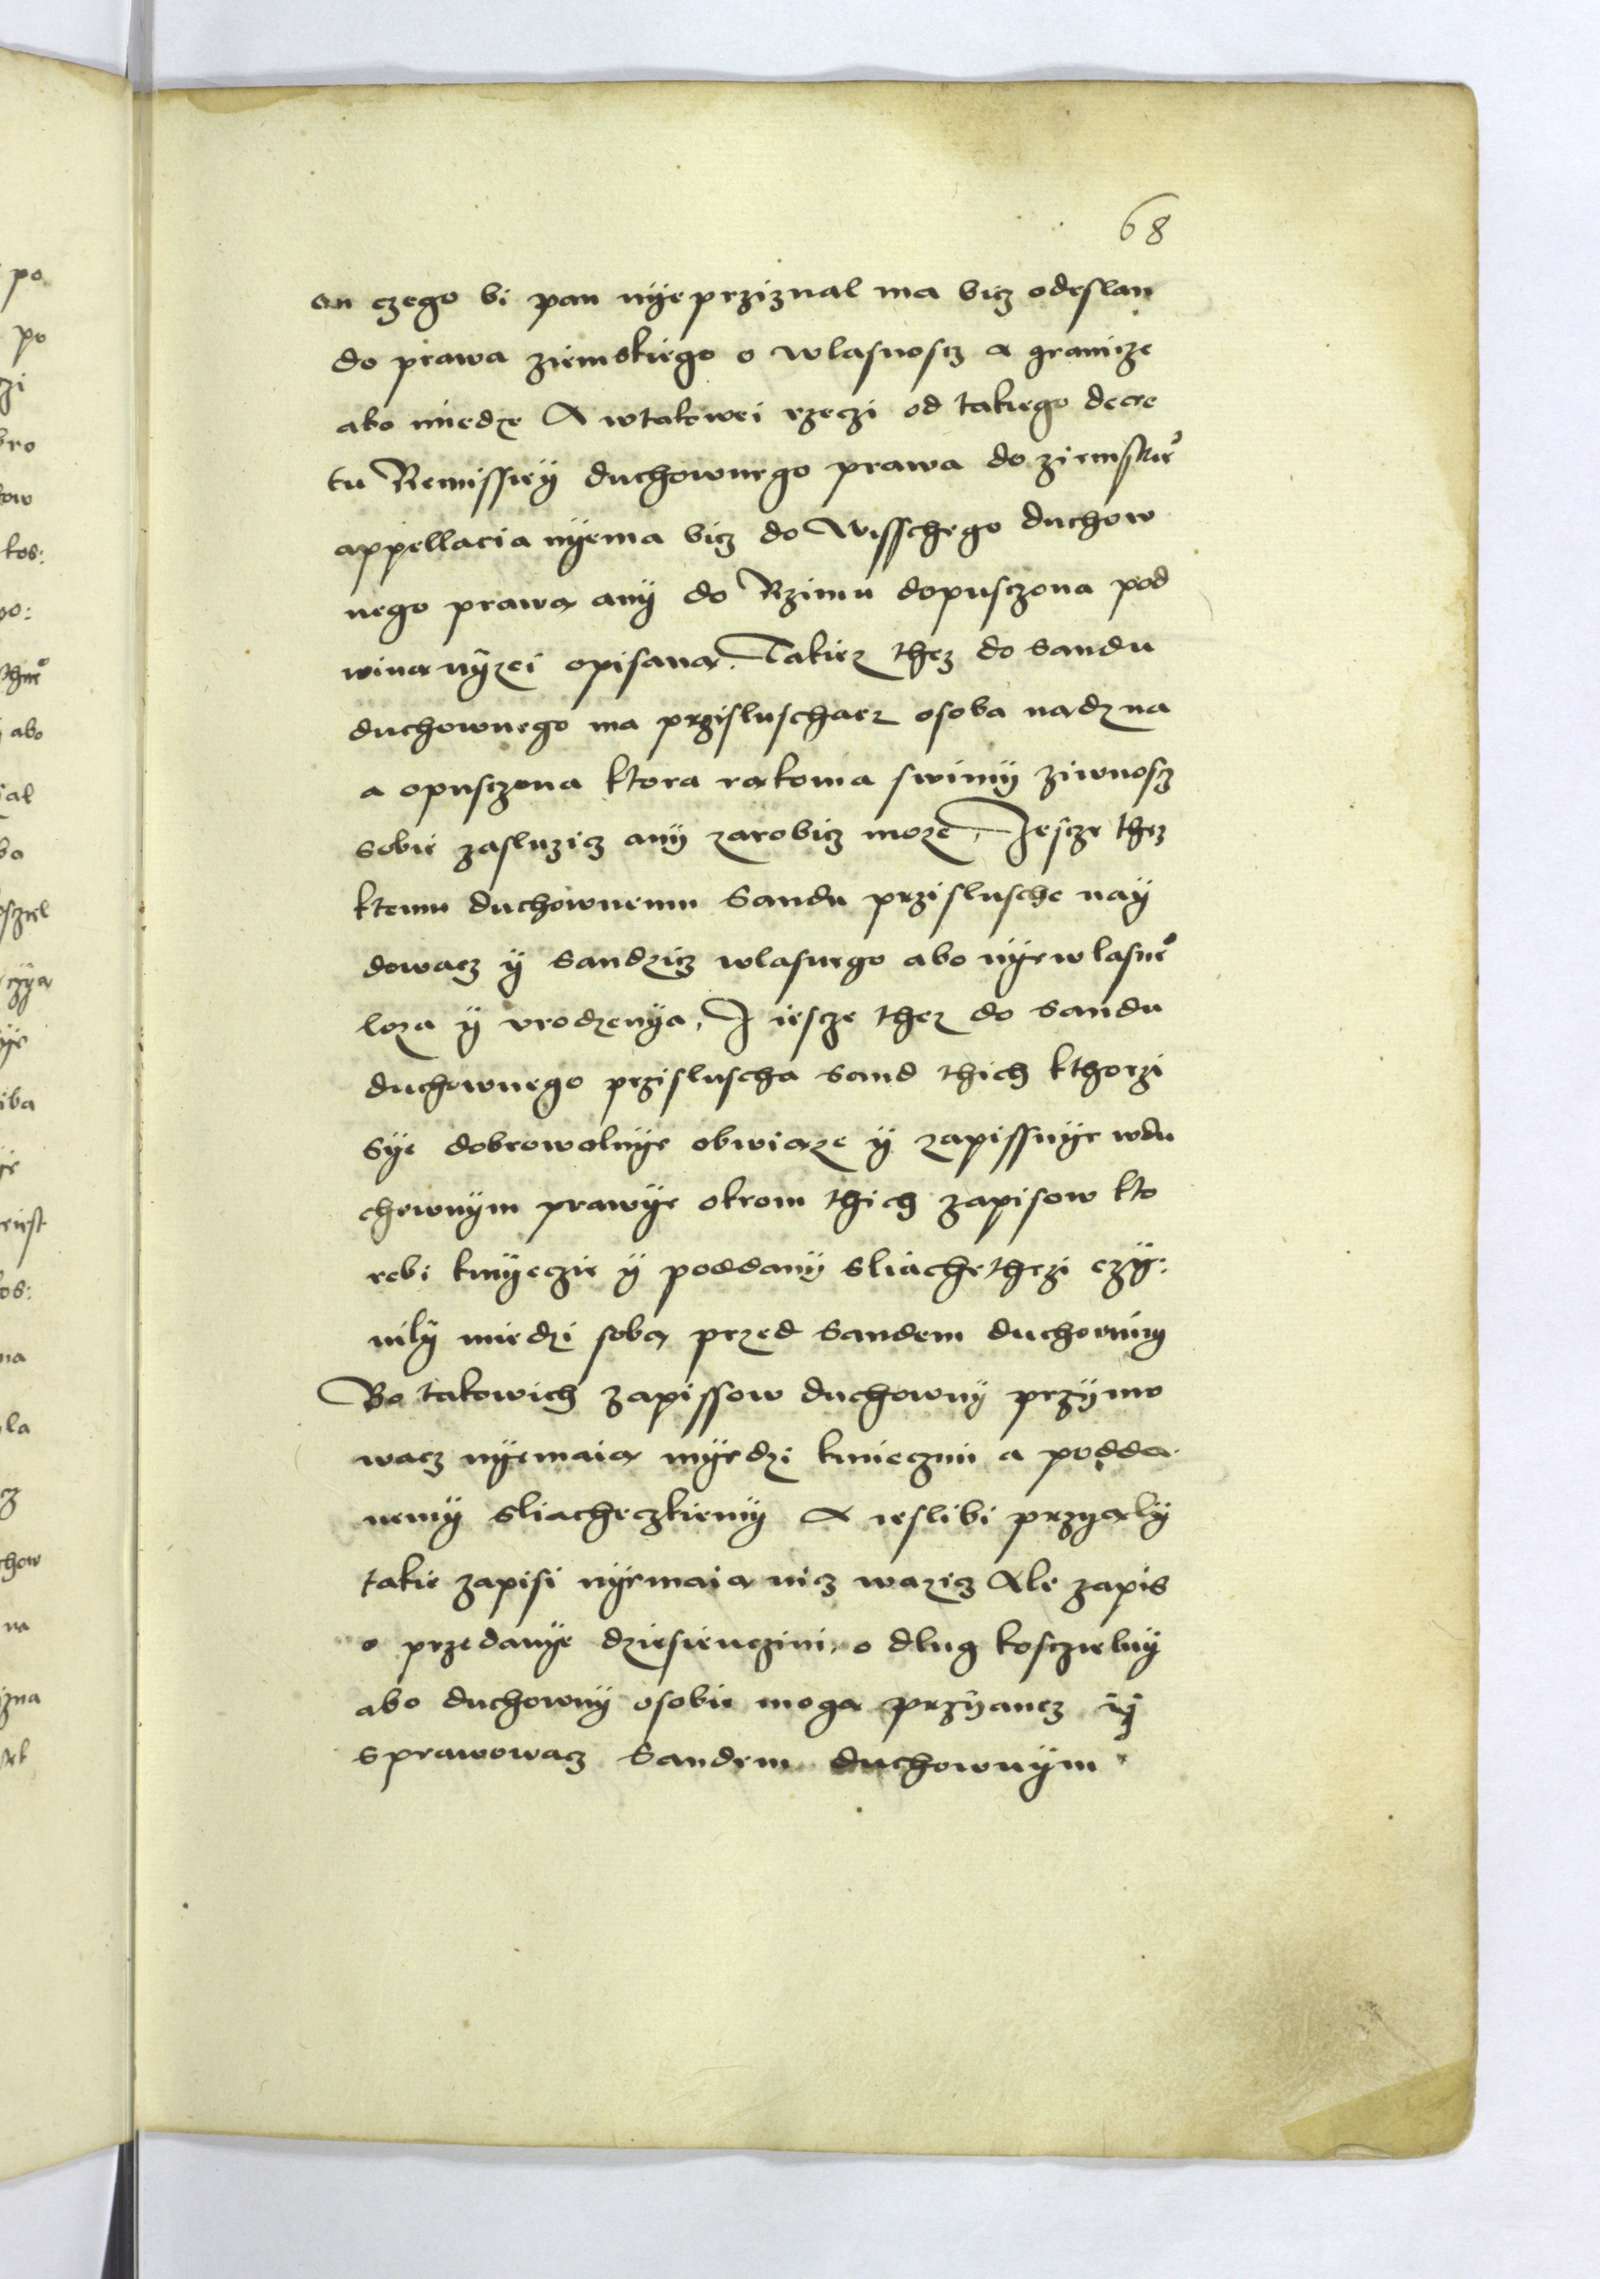 68
on czego bi pan nÿeprziznal ma bicz odeslan
do prawa ziemskiego o wlasnoscz a granicze
abo miedze A wtakowei rzeczi od takiego decre
tu Remissieÿ duchownego prawa do ziemskie°
appellacia nÿema bicz do Wisschego duchow
nego prawa anÿ do Rzimu dopusczona pod
wina nÿzei opisana. Takiez thez do sandu
duchownego ma przisluschacz osoba nądzna
a opusczona ktora rąkoma swimÿ ziwnoscz
sobie zasluzicz anÿ zarobicz moze, Iescze thez
ktemu duchownemu sandu przislusche naÿ
dowacz ÿ sandzicz wlasnego abo nÿewlasne°
loza ÿ vrodzenÿa, I iescze thez do sandu
duchownego przisluscha sand thich kthorzi
sÿe dobrowolnÿe obwiąze ÿ zapissuÿe wdu
chownÿm prawÿe okrom thich zapisow kto
rebi kmÿeczie ÿ poddanÿ sliachethczi czÿ:
nilÿ miedzi sobą przed sandem duchownÿ
Bo takowich zapissow duchownÿ przÿmo
wacz nÿemaią mÿedzi kmieczmi a podda
nemÿ sliacheczkiemÿ A ieslibi przÿąlÿ
takie zapisi nÿemaią nicz wazicz Ale zapis
o przedanÿe dziesienczini, o dlug kosczielnÿ
abo duchownÿ osobie mogą przÿancz ÿ
sprawowacz sandem duchownÿm